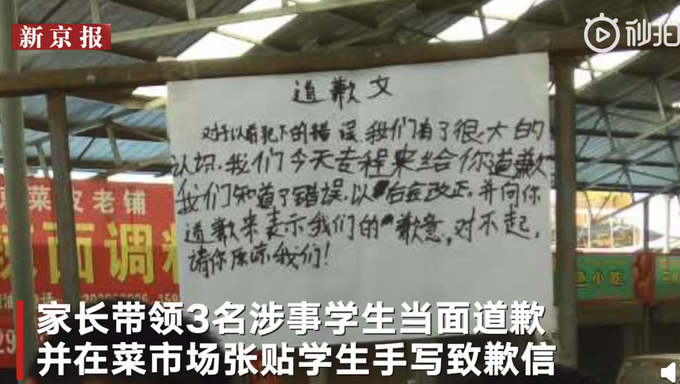 新京报
秒拍
道歉文
对于以前犯下的错误,我们有了很大的
认识,我们今天专程来给你道歉
我们知道了错误,以后会改正,并向你
道歉来表示我们的歉意,对不起,
请你原谅我们!
菜皮老铺
面调料
家长带领3名涉事学生当面道歉
并在菜市场张贴学生手写致歉信